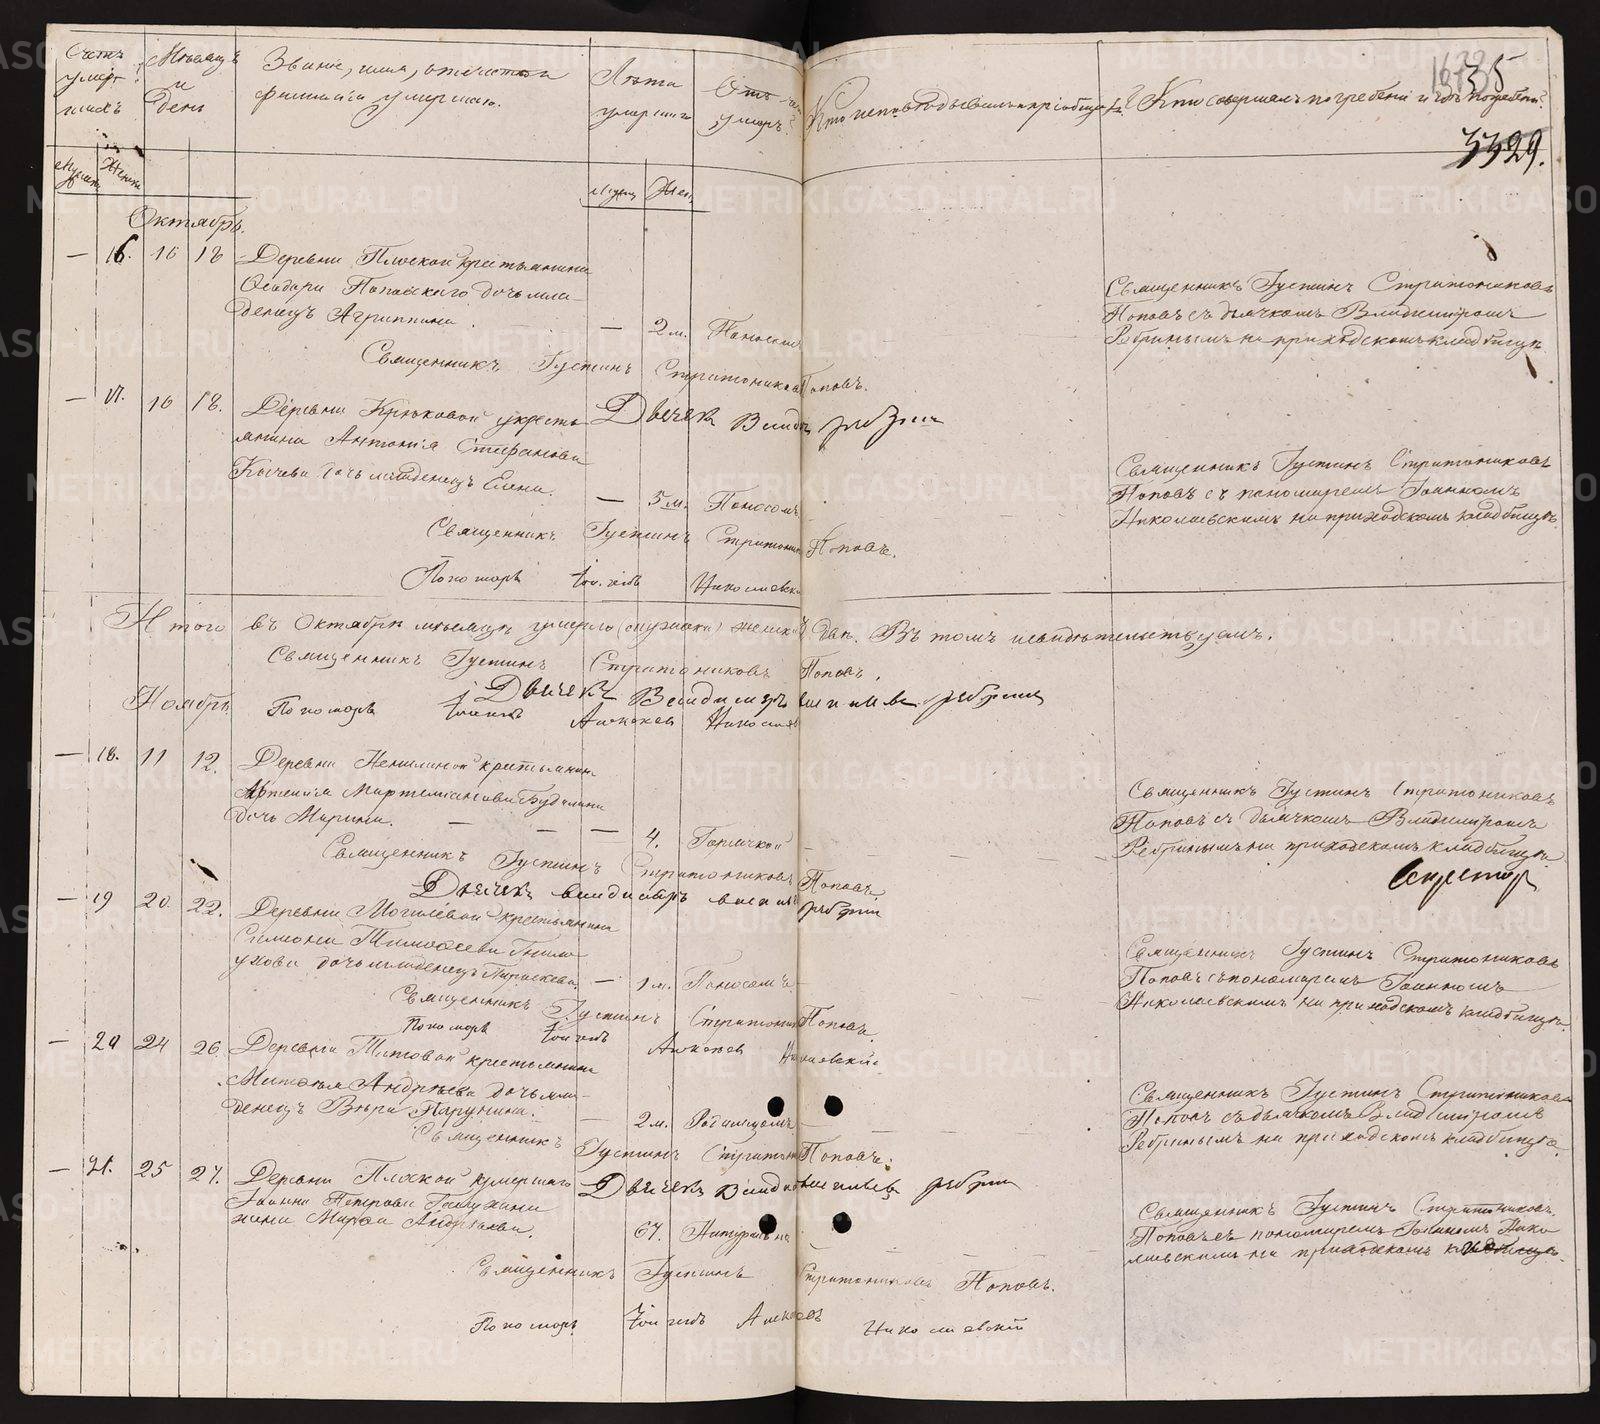 Счетъ умер-шихъ
Мѣсяцъ и день
Званіе, имя, отчество и фамилія умершаго.
Лѣта умершаго
Отъ чего умеръ?
Кто исповѣдывалъ и пріобщалъ?
Кто совершалъ погребеніе и гдѣ погребены?
35
3329.
Мужск.
Женск.
Муж.
Жен.
Октябрь.
— 16. 16 18 Деревни Плоской крестьянина
Поповскаго дочь мла-
денецъ Агриппина. — 2 м. Поносомъ
Священникъ Іустинъ Стратониковъ
Поповъ съ дьячкомъ Владимиромъ
Ребринымъ на приходскомъ кладбищѣ.
Священникъ Іустинъ Стратониковъ Поповъ.
Дьячекъ Влади Ребрин
— 17. 16 18. Деревни Крюковой у кресть
янина Антонія Стефанова
дочь младенецъ Елена. — 5 м. Поносомъ
Священникъ Іустинъ Стратониковъ
Поповъ съ пономаремъ Іоанномъ
Николаевскимъ на приходскомъ кладбищѣ.
Священникъ Іустинъ Стратоник Поповъ.
Пономарь Іоаннъ Николаевски
Итого въ Октябрѣ мѣсяцѣ умерло (мужска) женска два. Въ томъ и свидѣтельствуемъ.
Священникъ Іустинъ Стратониковъ Поповъ.
Дьячекъ Владимиръ Васильевъ Ребрин
Ноябрь.
Пономарь Іоаннъ Алексеев Николаев
— 18. 11 12. Деревни крестьянина
Артемія
дочь Марина. — — — 4. Горячкой
Священникъ Іустинъ Стратониковъ
Поповъ съ дьячкомъ Владимиромъ
Ребринымъ на приходскомъ кладбищѣ.
Священникъ Іустинъ Стратониковъ Поповъ
Дьячекъ Владимиръ Васильев Ребрин
Секретарь
— 19 20 22. Деревни Могилевой крестьянина
Симеона Тимофеева
дочь младенецъ Параскева. — 1 м. Поносомъ
Священникъ Іустинъ Стратониковъ
Поповъ съ пономаремъ Іоанномъ
Николаевскимъ на приходскомъ кладбищѣ.
Священникъ Іустинъ Стратоник Поповъ
Пономарь Іоаннъ Алексеев Николаевскій
— 20 24 26. Деревни Титовой крестьянина
Матвѣя Андреева дочь мла-
денецъ Вѣра Парунина. — 2 м. Родимцомъ
Священникъ Іустинъ Стратониковъ
Поповъ съ дьячкомъ Владимиромъ
Ребринымъ на приходскомъ кладбищѣ.
Священникъ Іустинъ Стратоник Поповъ.
Дьячекъ Владим Васильевъ Ребрин
— 21. 25 27. Деревни Плоской умершаго
Іоанна Петрова
жена Марѳа Андреева. 67. Натурально
Священникъ Іустинъ Стратониковъ
Поповъ съ пономаремъ Іоанномъ Нико
лаевскимъ на приходскомъ кладбищѣ.
Священникъ Іустинъ Стратониковъ Поповъ.
Пономарь Іоаннъ Алексеевъ Николаевскій
METRIKI.GASO-URAL.RU